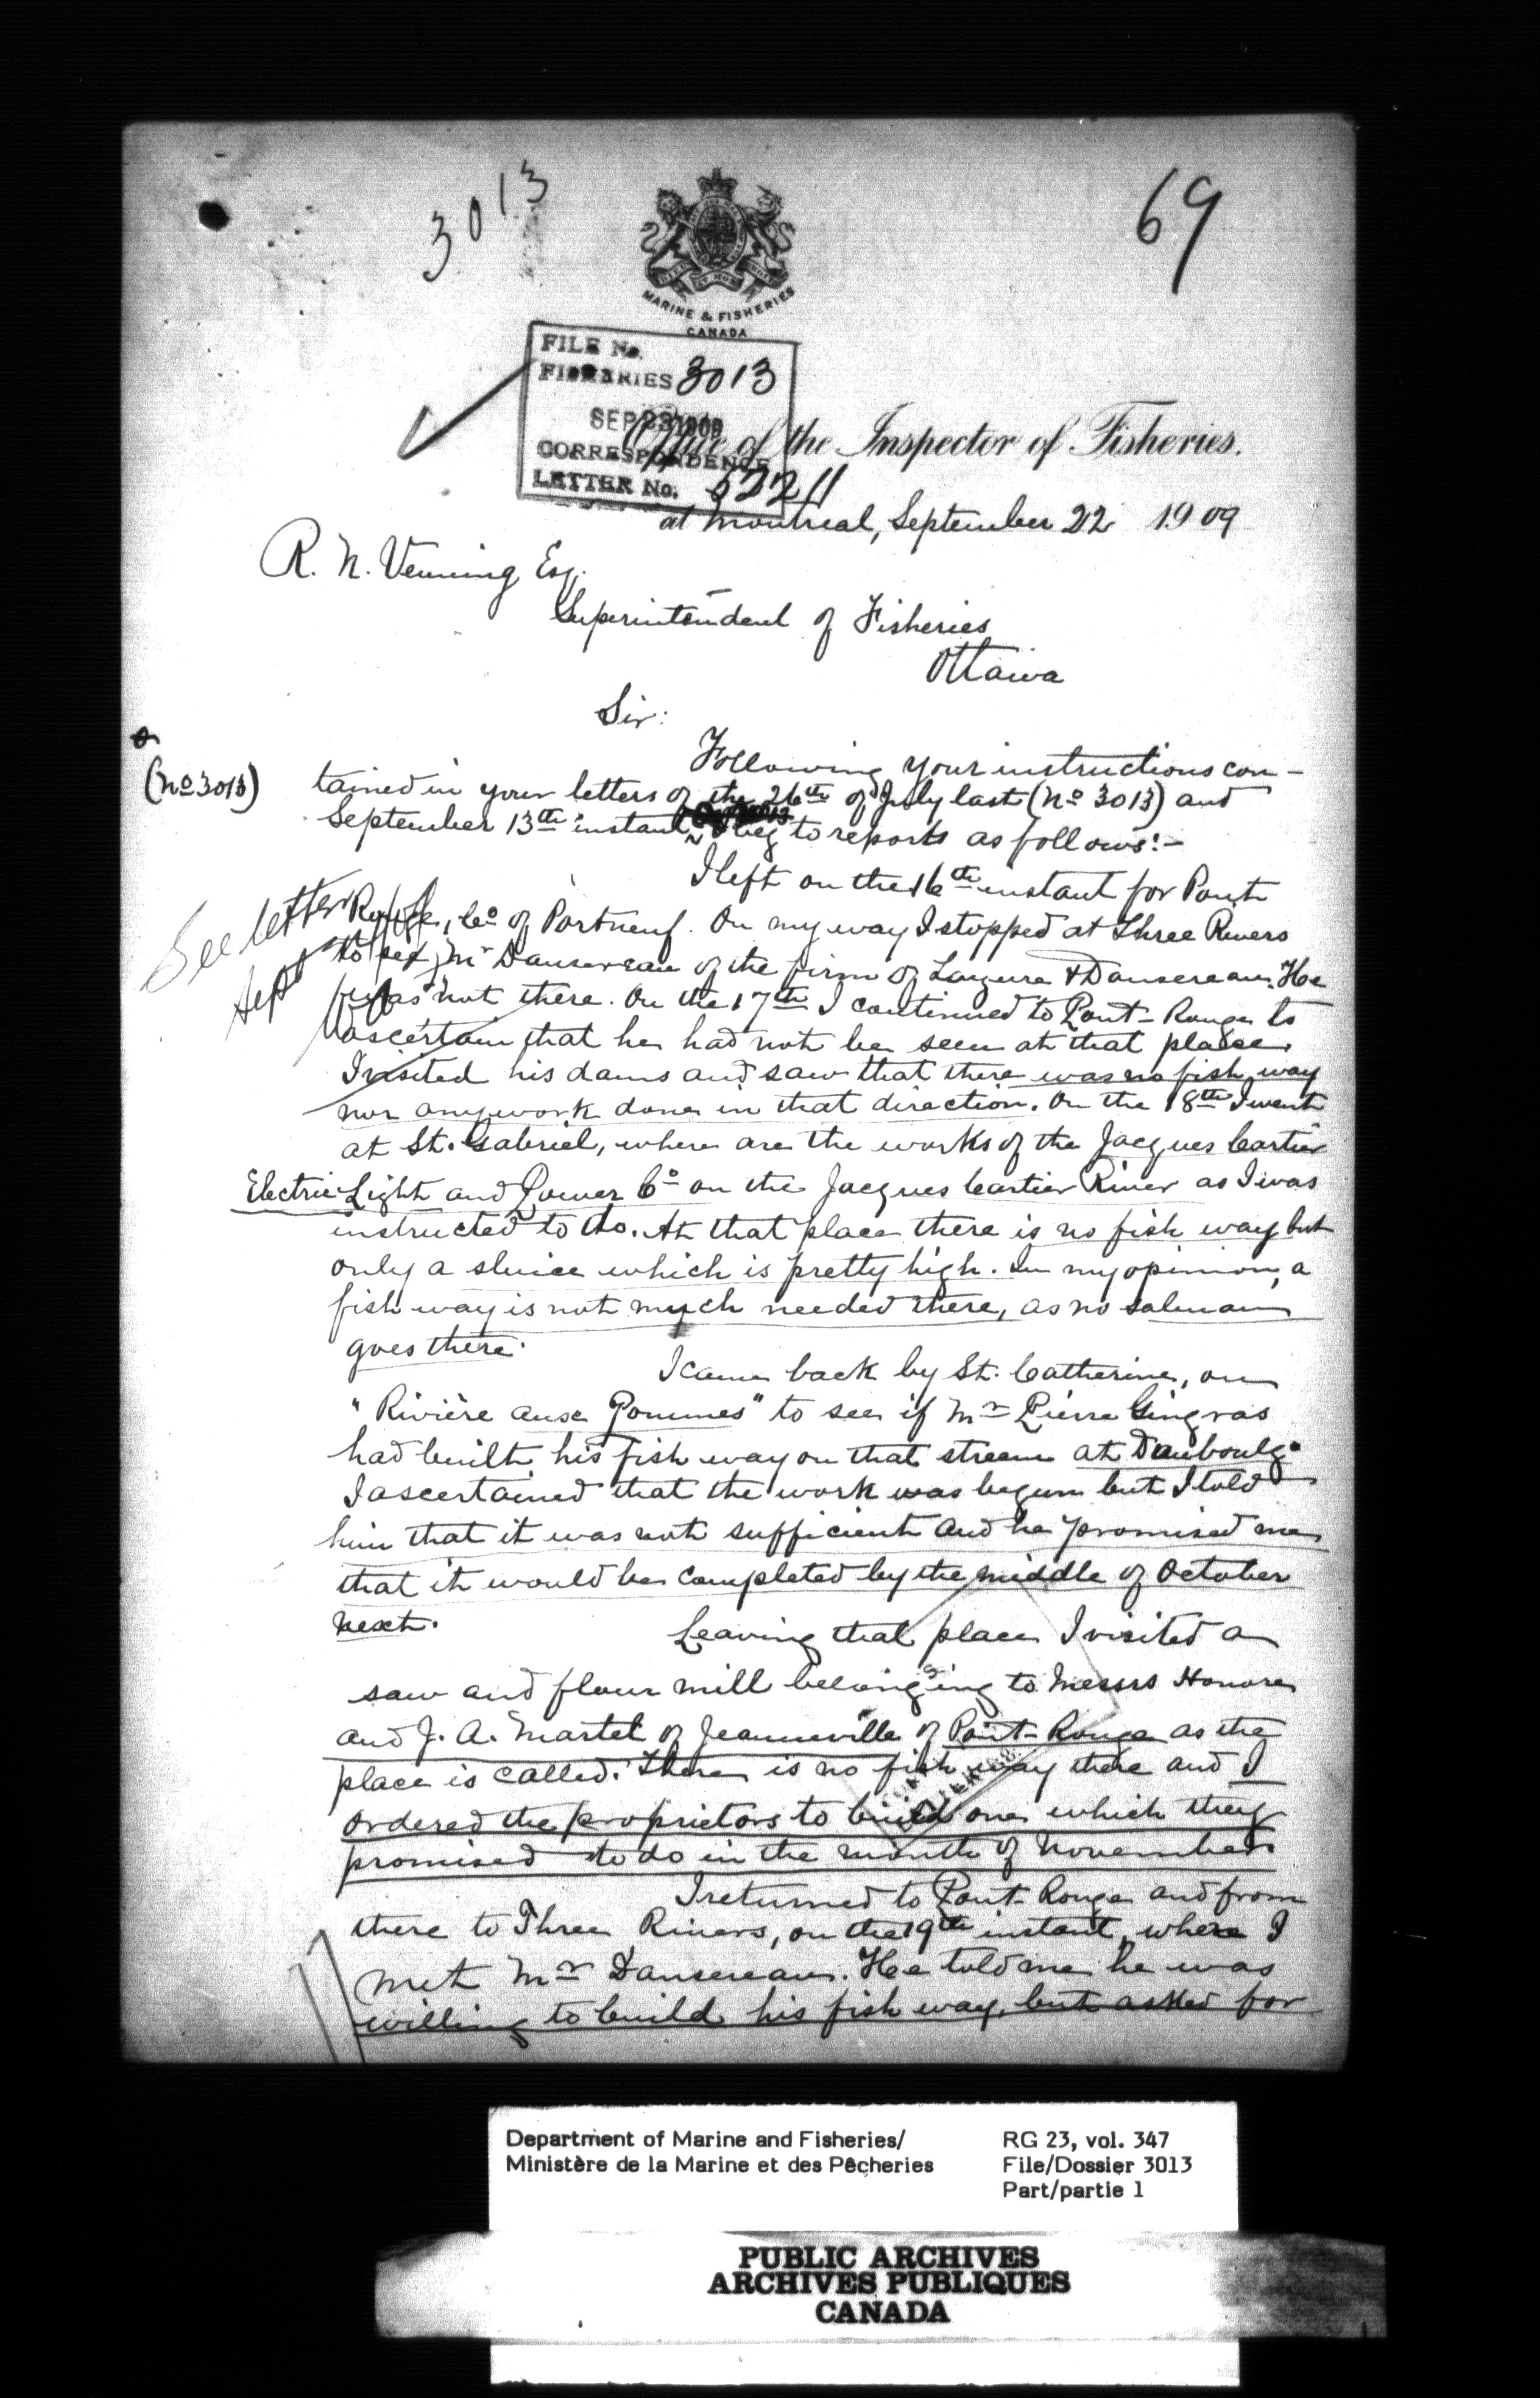 3013
69
MARINE & FISHERIES
CANADA
FILE No.
FISHERIES 3013
SEP 23 1909
CORRESPONDENCE
LETTER No. 52211
Office of the Inspector of Fisheries.
at Montreal, September 22 1909
R. N. Venning, Esq.
Superintendent of Fisheries
Ottawa
Sir:
Following your instructions con-
(No 3013)
tained in your letters of the 26th of July last (No 3013) and
September 13th instant, I beg to report as follows:-
I left on the 16th instant for Pont
See letter
Sept
Rouge, Co of Portneuf. On my way I stopped at Three Rivers
to see Mr Dansereau of the firm of & Dansereau. He
was not there. On the 17th I continued to Pont-Rouge to
ascertain that he had not be seen at that place.
I visited his dams and saw that there was no fish way
nor any work done in that direction. On the 18th I went
at St. Gabriel, where are the works of the Jacques Cartier
Electric Light and Power Co on the Jacques Cartier River as I was
instructed to do. At that place there is no fish way but
only a sluice which is pretty high. In my opinion, a
fish way is not much needed there, as no salmon
goes there.
I came back by St. Catherine, on
"Rivière aux Pommes" to see if Mr Pierre Gingras
had built his fish way on that stream at
I ascertained that the work was begun but I told
him that it was not sufficient and he promised me
that it would be completed by the middle of October
next.
Leaving that place I visited a
saw and flour mill belonging to Messrs Honore
and J. A. Martel of Jeanneville of Pont-Rouge as the
place is called. There is no fish way there and I
ordered the proprietors to build one which they
promised to do in the month of November.
I returned to Pont-Rouge and from
there to Three Rivers, on the 19th instant, where I
met Mr Dansereau. He told me he was
willing to build his fish way, but asked for
Department of Marine and Fisheries/
Ministère de la Marine et des Pêcheries
RG 23, vol. 347
File/Dossier 3013
Part/partie 1
PUBLIC ARCHIVES
ARCHIVES PUBLIQUES
CANADA